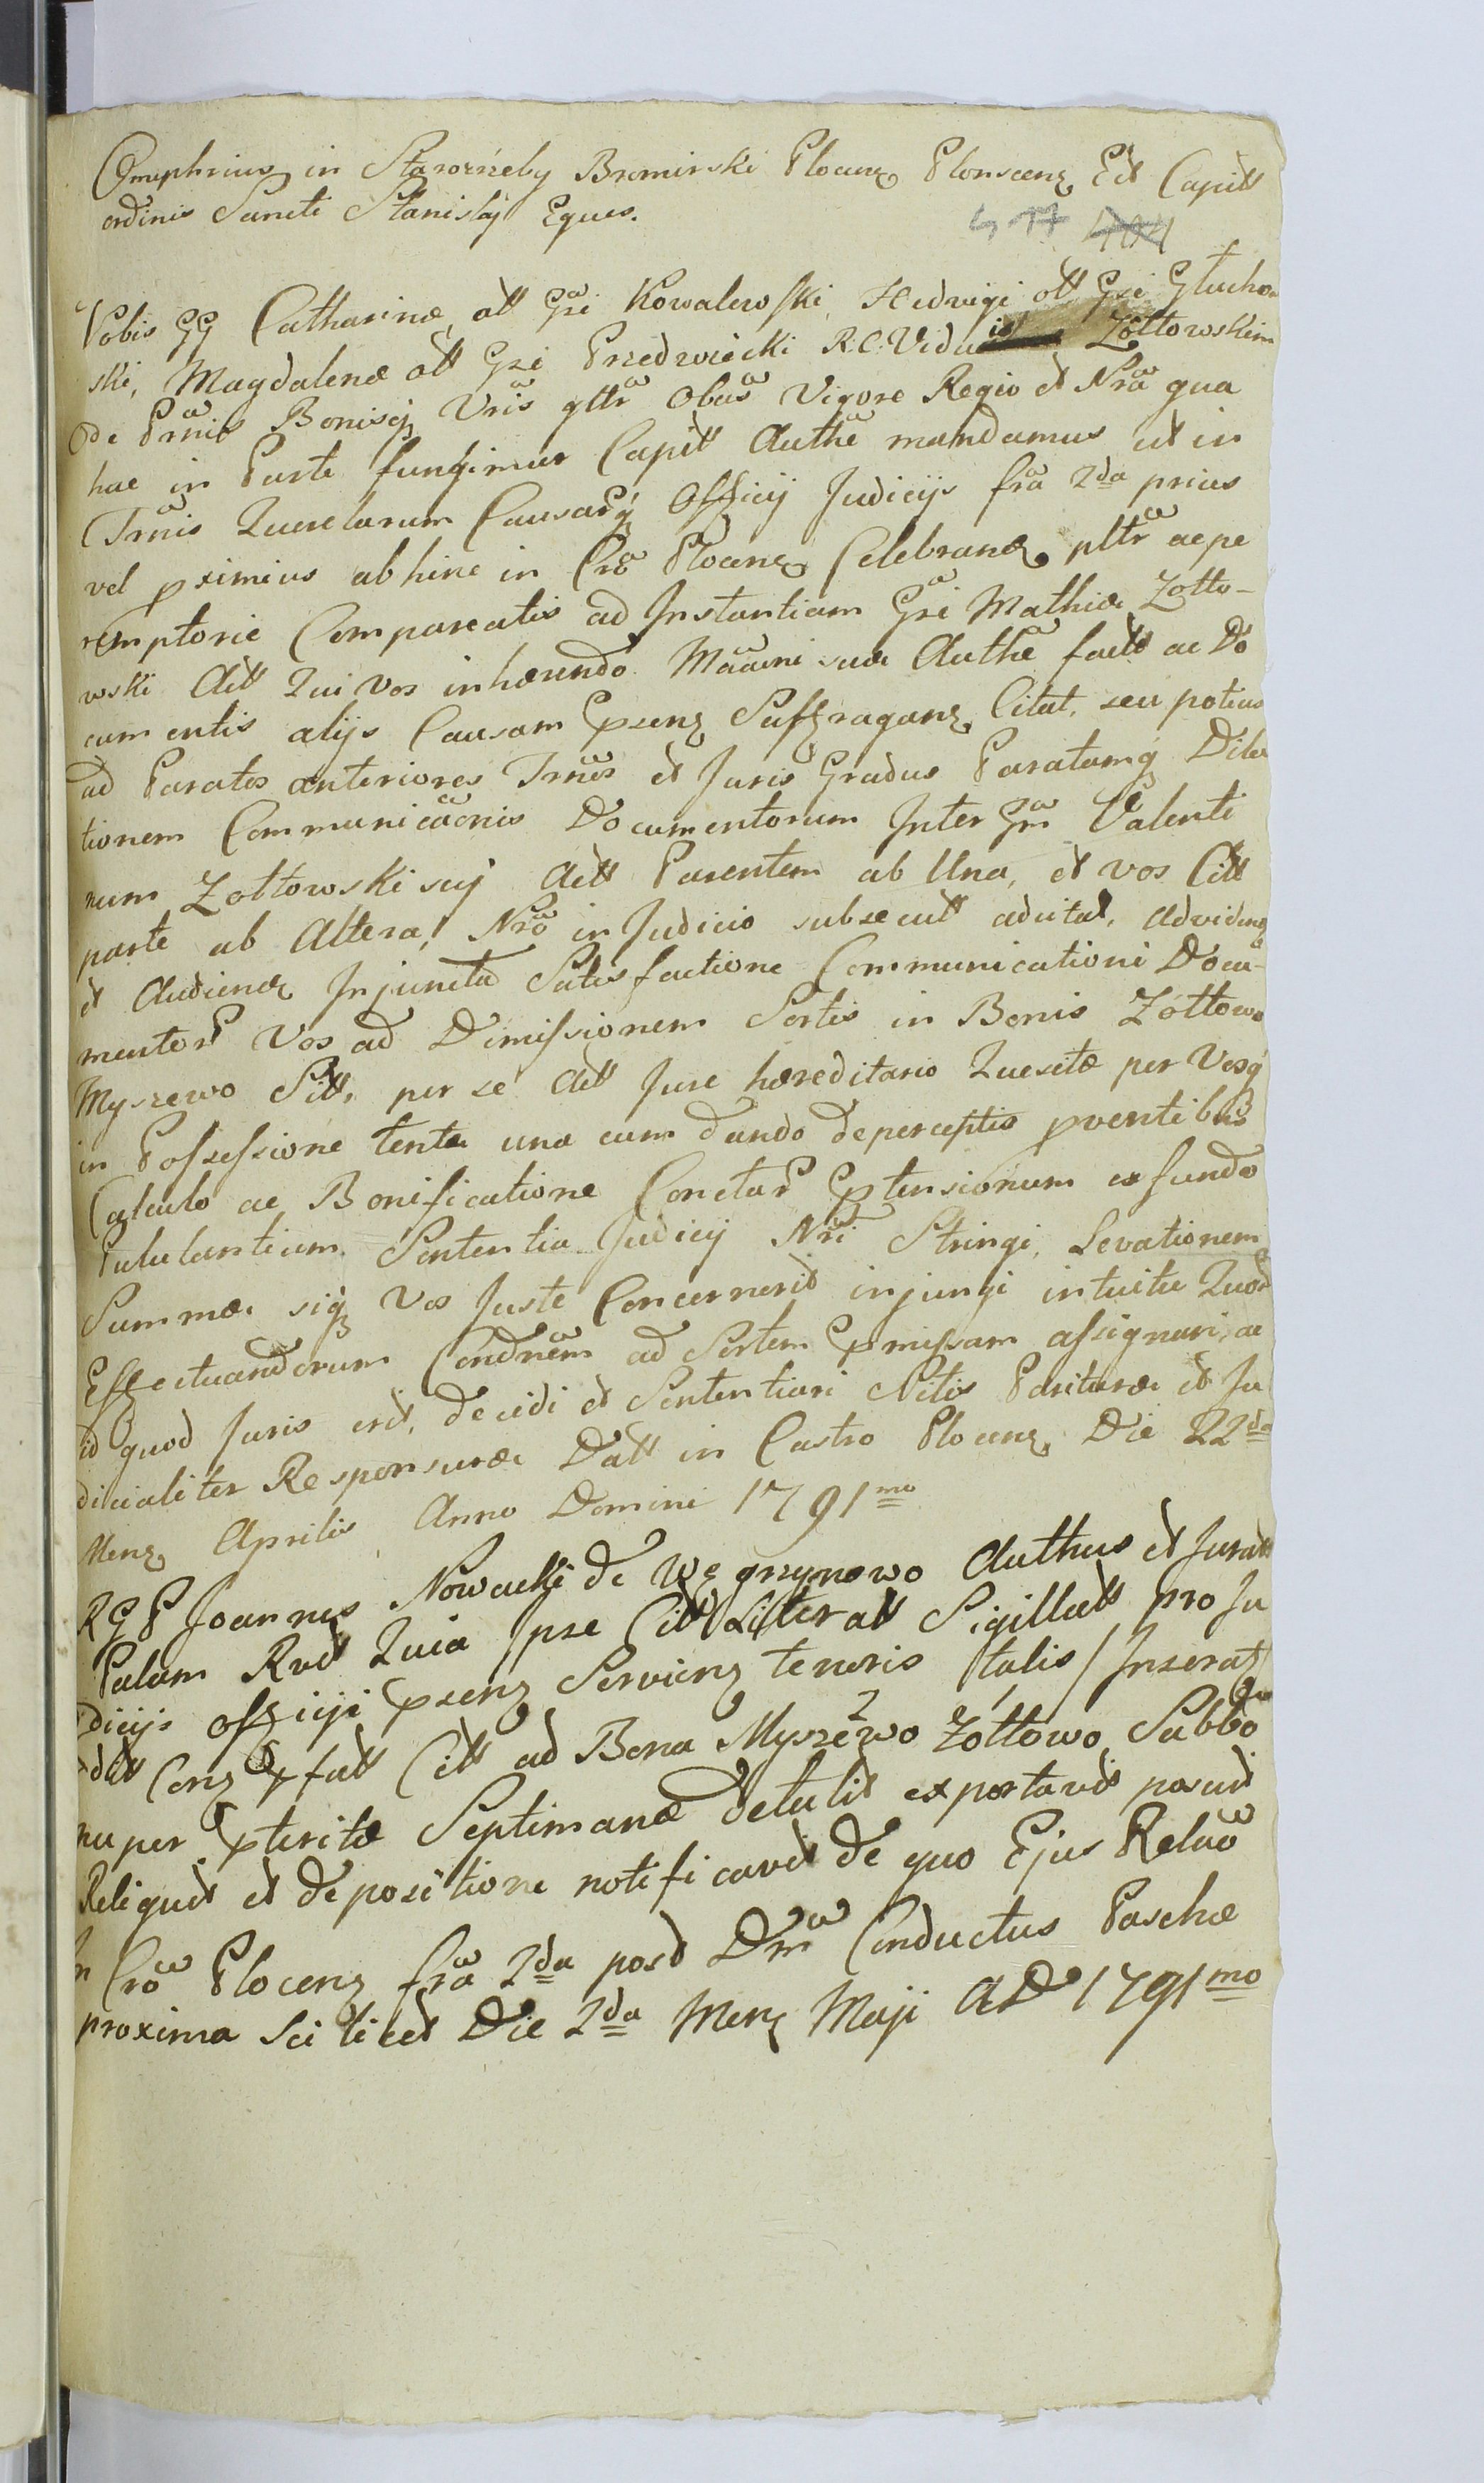 Onuphrius in Staroźreby Bromirski Plocenȝ Plonscenȝ Ect Capitt
ordinis Sancti Stanislaj Eques.
477 404
Vobis GG Catharinæ, ott Gsi Kowalewski, Hedvigi ott Gsi Głucho-
ski, Magdalenæ ott Gsi Przedwiecki R.C. Viduis Zołtowskim
De Prnis Bonisq Vris gltr Obus Vigore Regio et Nra qua
hac in Parte fungimur Capitt Authe mandamus ut in
Trnis Querelarum Causarq Officij Judicijs fra 2da prius
vel pximius abhinc in Cro Plocenȝ Celebrandȝ pltr ac pe
remptorie Compareatis ad Instantiam Gsi Mathiæ Zołto-
wski Actt Qui vos inhærendo Maacni suæ Authe factt ac Do
cumentis alijs Causam Psenȝ Suffraganȝ Citat. seu potius
ad Paratos anteriores Trnos et Juris Gradus Paratamq Dila
tionem Communicaonis Documentorum Inter Gm Valenti
num Zołtowski sui Actt Parentem ab Una, et vos Citt
parte ab Altera, Nro in Judicio subsecutt adcitat, advidenȝ
et Audiendȝ Injuncta Satisfactione Communicationi Docu-
mentor Vos ad Dimissionem Sortis in Bonis Zółtowo
Myszewo Sitt, per se Actt Jure hæreditario Quesitæ per Vosq
in Possessione tentæ una cum dando de perceptis pventibus
Calculo ac Bonificatione Conctar Ptensionum ex fundo
Pululantium. Sententia Judicij Nri Stringi, Levationem
Summæ siq Vos Juste Concernerit injungi intuitu Quor
Effectuandorum Condnem ad Sortem Pmissam assignari, ac
id quod Juris erit, decidi et Sententiari Sitis Pariturae et Ju
dicialiter Responsuræ Datt in Castro Plocenȝ Die 22da
Menȝ Aprilis Anno Domini 1791mo
RGP Joannes Nowacki de Węgrzynowo Authus et Juratt
Palam Rvit Quia Ipse Citt Litteratt Sigillatt pro Ju
dicijs officiji Psenȝ Servienȝ tenoris talis / Inseratȝ
Edtt Conȝ Pfatt Citt ad Bona Myszewo 2 Zółtowo Sabbo
nuper Pteritæ Septimanæ detulit exportavit posuit
Reliquit et de positione notificavit de quo Ejus Relao
In Cro Plocenȝ fra 2da post Dm Conductus Paschæ
proxima scilicet Die 2da Menȝ Maji AD 1791mo